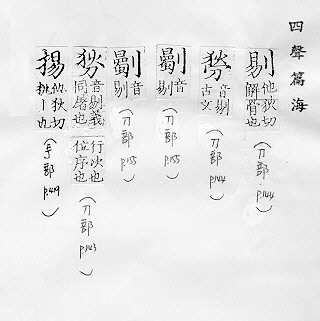 四聲篇海
剔
他狄切
解骨也
(刀部 p.144)
音剔
古文
(刀部 p.144)
音
剔
(刀部 p.155)
音
剔
(刀部 p.155)
音剔義
同屠也
行次也
位序也
(刀部 p.143)
掦
他狄切
挑丨也
(手部 p.419)